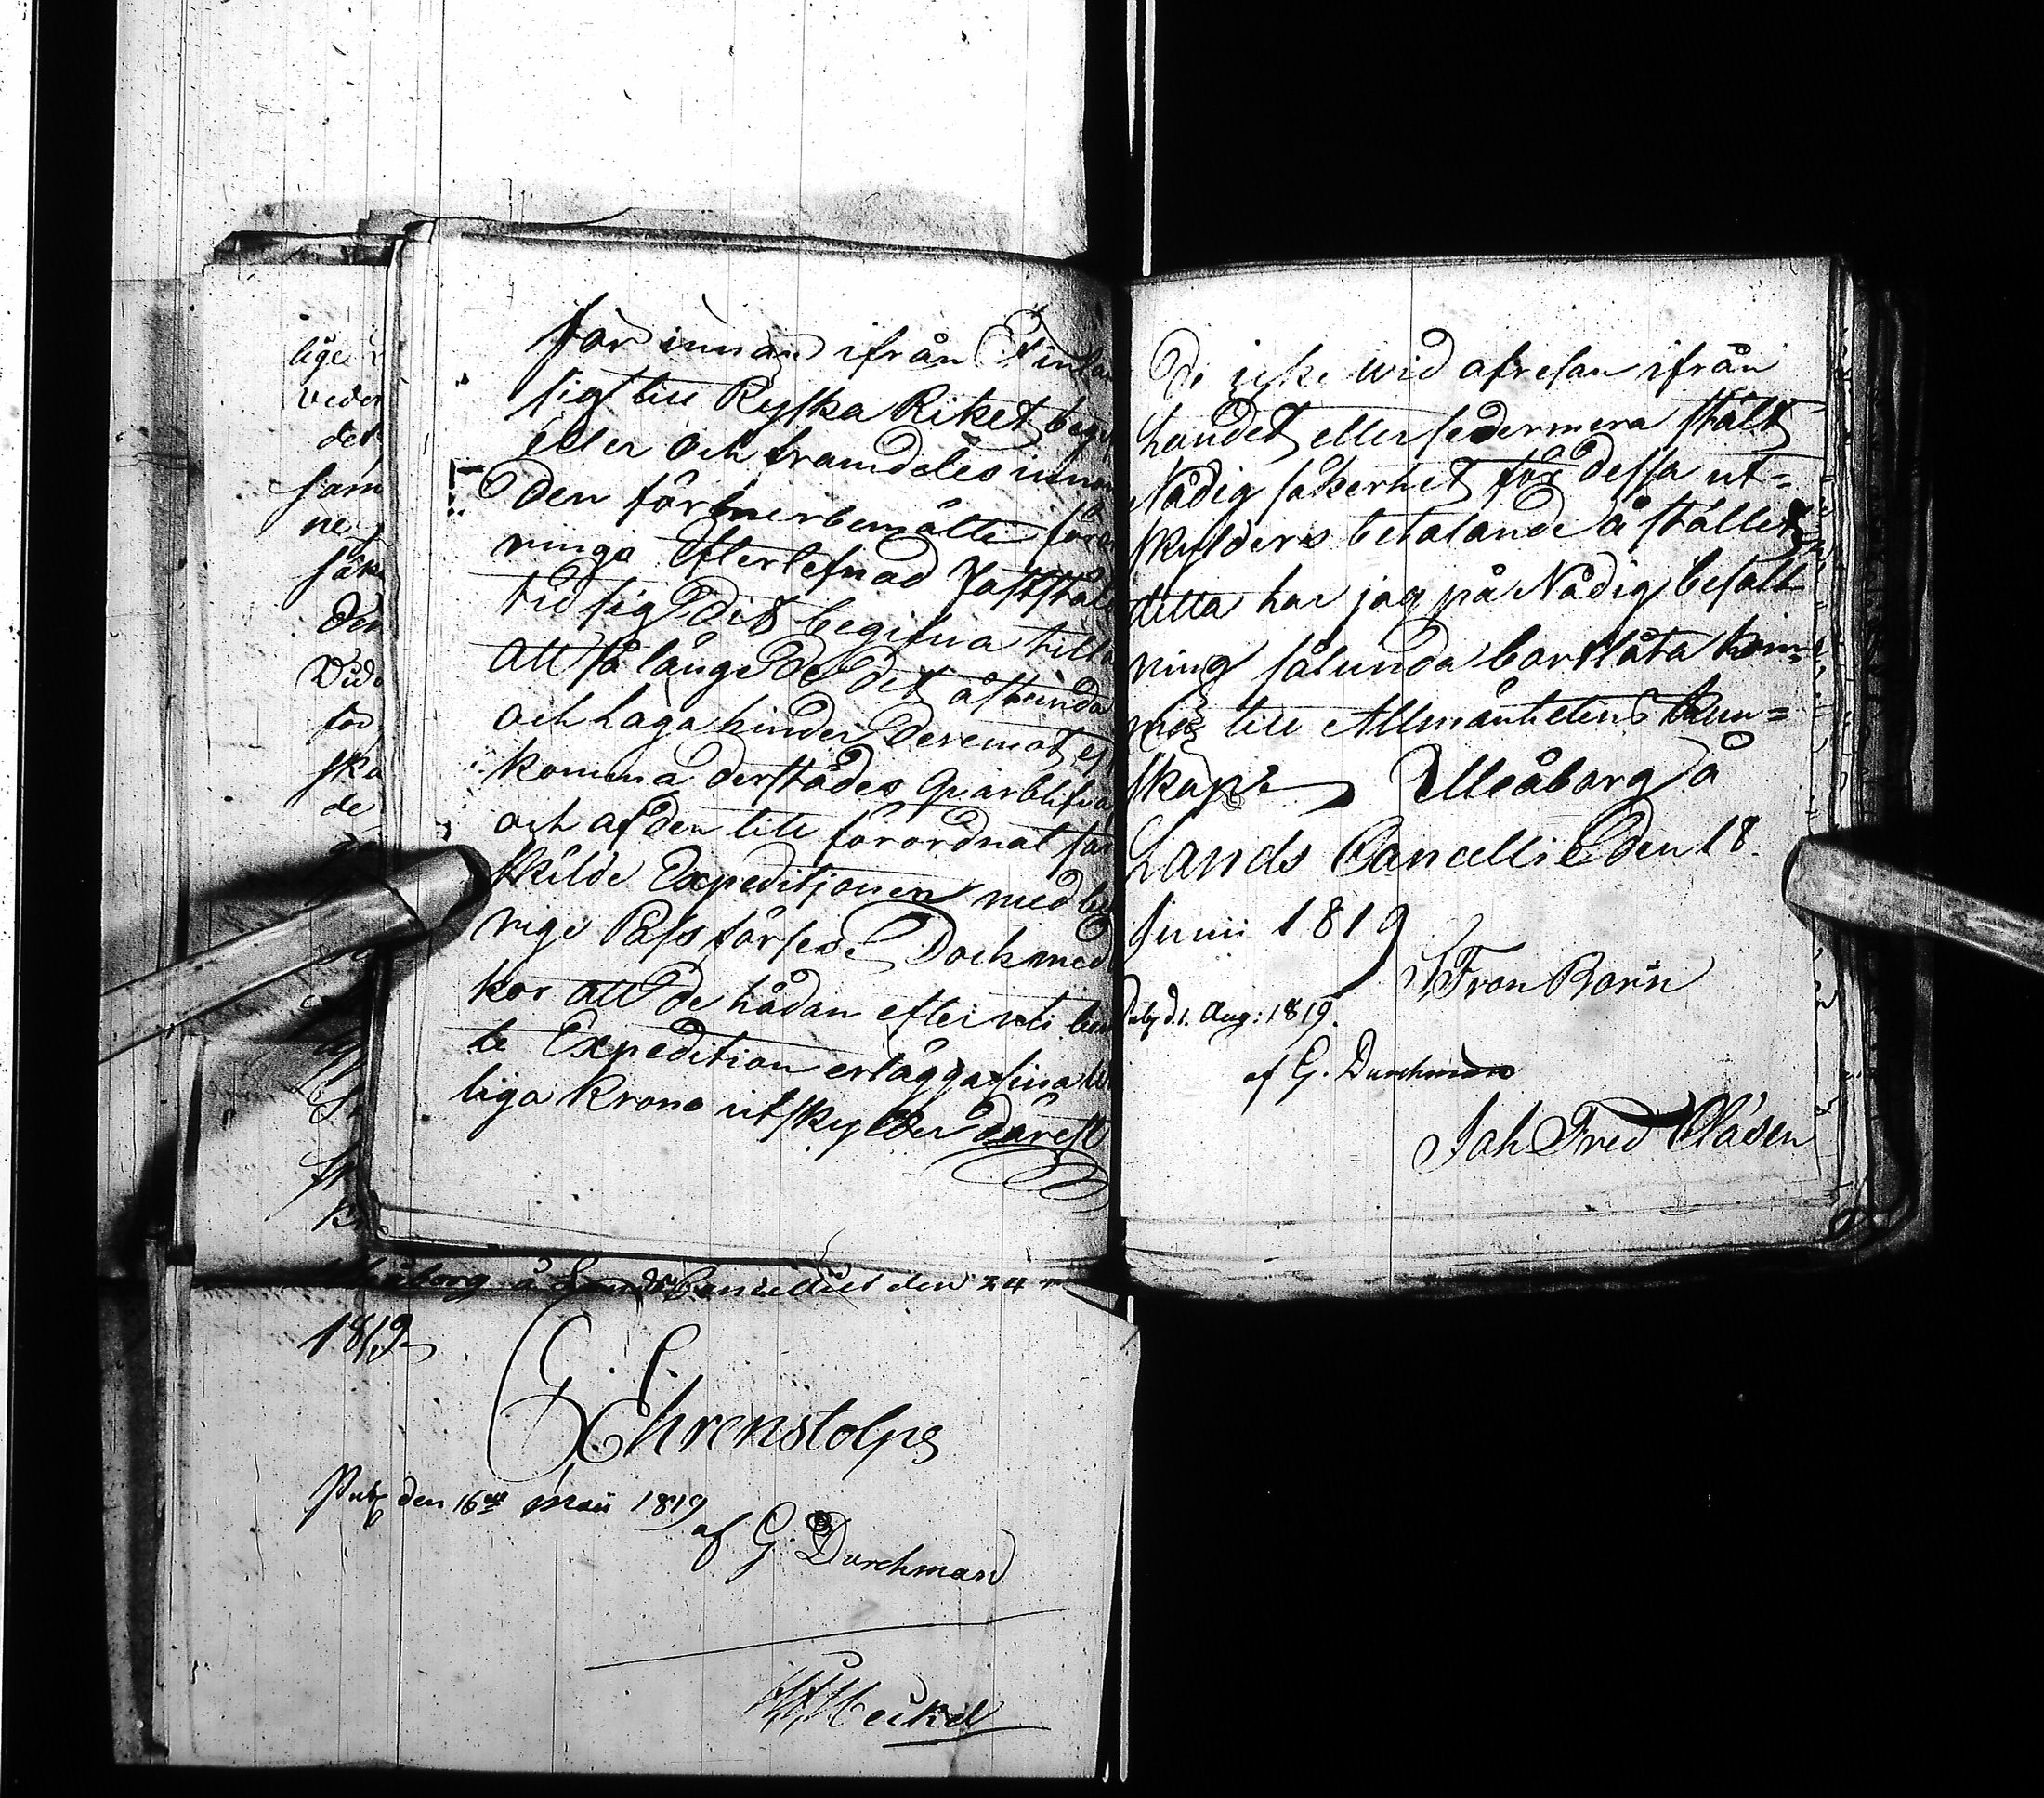 lige
veder
det
som
ne
säke
den
Vid
för
ska
de
för innan ifrån Finla
sig till Ryska Riket beg
eller och framdeles innan
den förberbemälte för
ninga Efterlefnad faststäl
tid sig dit begifva tillå
att så länge de det åstunda
och laga hinder deremot ej
komma derstädes qvarblifva
och af den till förordnat sär
skilde Expeditionen med be
rige Pass förses. Dock med
kor att de hädan efter uti be
te Expedition erlägga sina
liga Krono utskylder därest
De icke wid afresan ifrån
Landet eller sedermera stält
Nådig säkerhet för dessa ut=
skylders betalande å stället
detta har jag på Nådig befall
ning sålunda bordt låta kom=
ma till Allmänhetens kun=
skap. Uleåborg å
Lands Cancelliet den 18.
Junii 1819
S F von Born
Publ d. 1. Aug: 1819.
af G. Durchman
Joh Fred Clásen
Uleåborg å Lands Cancelliet den 24
1819
G. Ehrenstolpe
Publ den 16de Maii 1819
af G. Durchman